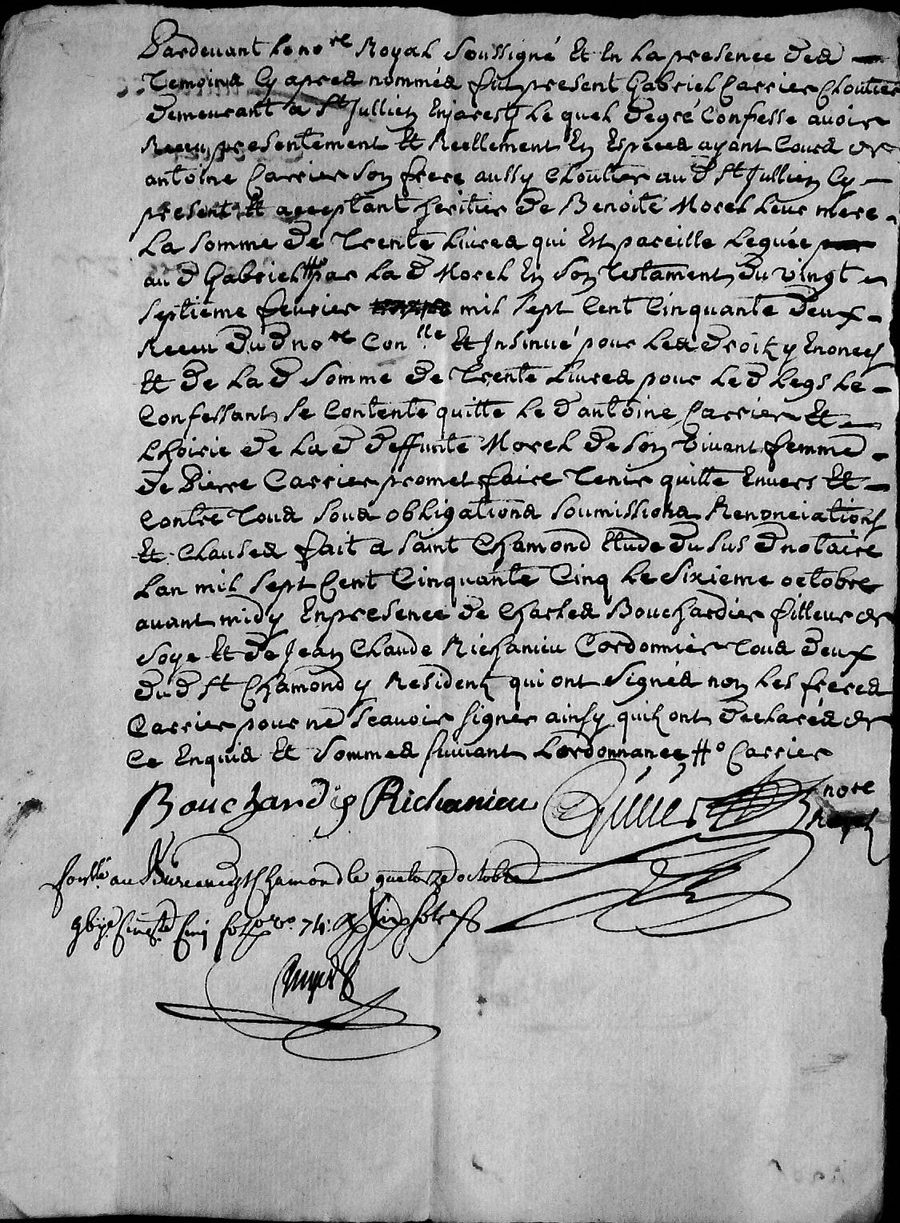 Pardevant le nore Royal Soussigné Et En La presence des
Temoins Cy apres nommés fut present Gabriel Carrier Cloutier
demeurant a St Jullien Enjarest Le quel de gré Confesse avoir
Receu presentement Et Reellement En Especes ayant Cours de
antoine Carrier Son frere aussy Cloutier au d St Jullien Cy
present Et acceptant heritier de Benoite Morel Leur mere
La somme de Trente Livres qui Est pareille Leguée
au d Gabriel par La d Morel En Son Testament du vingt
Septieme fevrier mil Sept Cent Cinquante deux
Receu du d nore Conllé Et Insinué pour Les droits y Enoncés
Et de La d somme de Trente Livres pour Le d Legs Le
Confessant Se Contente quitte Le d antoine Carrier Et
Lhoirie de La d deffunte Morel de Son vivant femme
de Pierre Carrier promet faire Tenir quitte Envers Et
Contre Tous Sous obligations Soumissions Renonciations
Et Clauses fait a Saint Chamond Etude du Sus d notaire
Lan mil Sept Cent Cinquante Cinq Le Sixieme octobre
avant midy En presence de Charles Bouchardier filleur de
Soye Et de Jean Claude Richanieu Cordonnier Tous deux
du d St Chamond y Resident qui ont Signés non Les freres
Carrier pour ne Scavoir Signer ainsy quils ont declarés de
Ce Enquis Et Sommés Suivant Lordonnance Carrier
Bouchardie Richanieu nore
Conllé au Bureau de St Chamond le quatorze octobre
Cinq fo vo 74